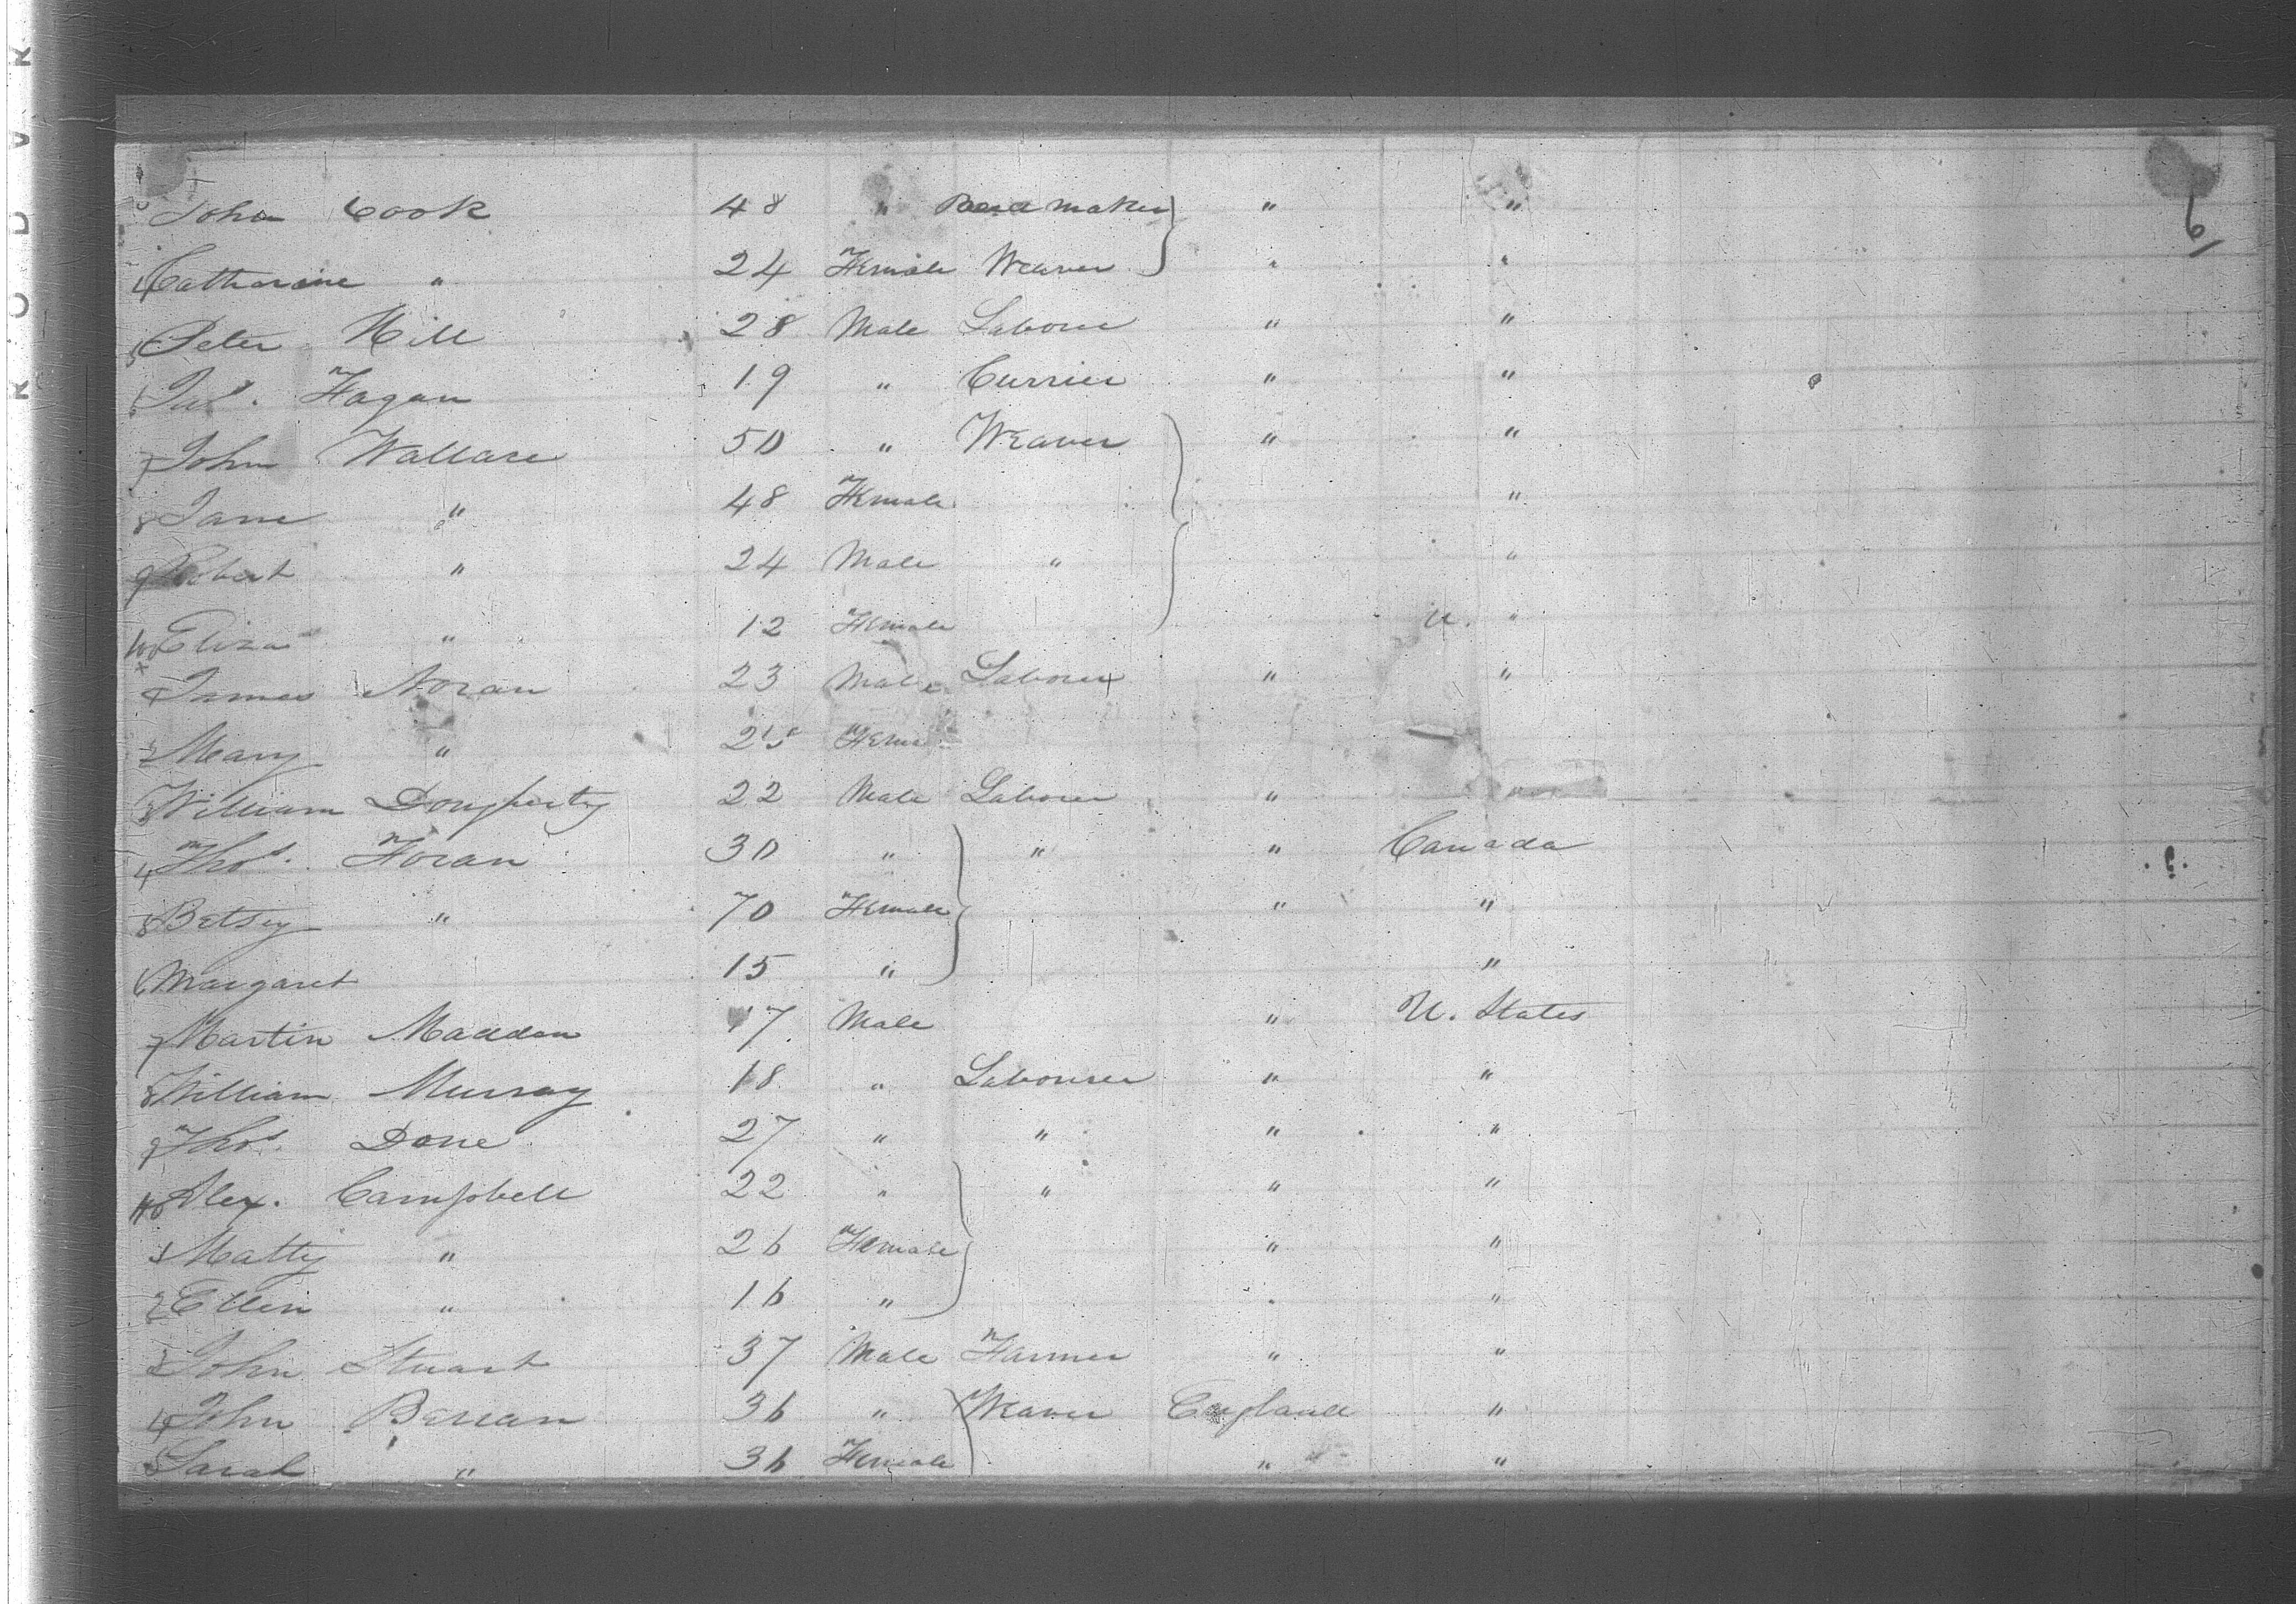 6
John Cook 48 " maker } " "
4 Catharine " 24 Female Weaver " "
5 Peter Hill 28 Male Laborer " "
6 Jas. Fagan 19 " Currier " "
7 John Wallace 50 " Weaver } " "
8 Jane " 48 Female "
9 Robert " 24 Male " "
Eliza " 12 Female U. "
x
James 23 Male Laborer " "
2 Mary " 25
3 William Dougherty 22 Male Laborer " "
4 Thos. Foran 30 " } " " Canada
5 Betsey " 70 Female " "
6 Margaret 15 " "
7 Martin Madden 17 Male " U. States
8 William Murray 18 " Labourer " "
9 Thos. Done 27 " " " "
Alex. Campbell 22 " } " " "
Matty " 26 Female " "
2 Ellen " 16 " " "
3 John Stuart 37 Male Farmer " "
4 John 36 " { Weaver England "
5 Sarah " 36 Female " "